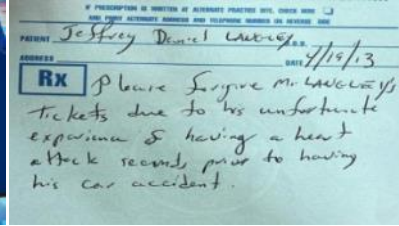 IF PRESCRIPTION IS WRITTEN AT ALTERNATE PRACTICE SITE, CHECK HERE
AND PRINT ALTERNATE ADDRESS AND TELEPHONE NUMBER ON REVERSE SIDE
PATIENT Jeffrey Daniel LANGLEY
ADDRESS DATE 2/19/13
Rx Please forgive Mr LANGLEY's
Tickets due to his unfortunate
experience of having a heart
attack seconds prior to having
his car accident.